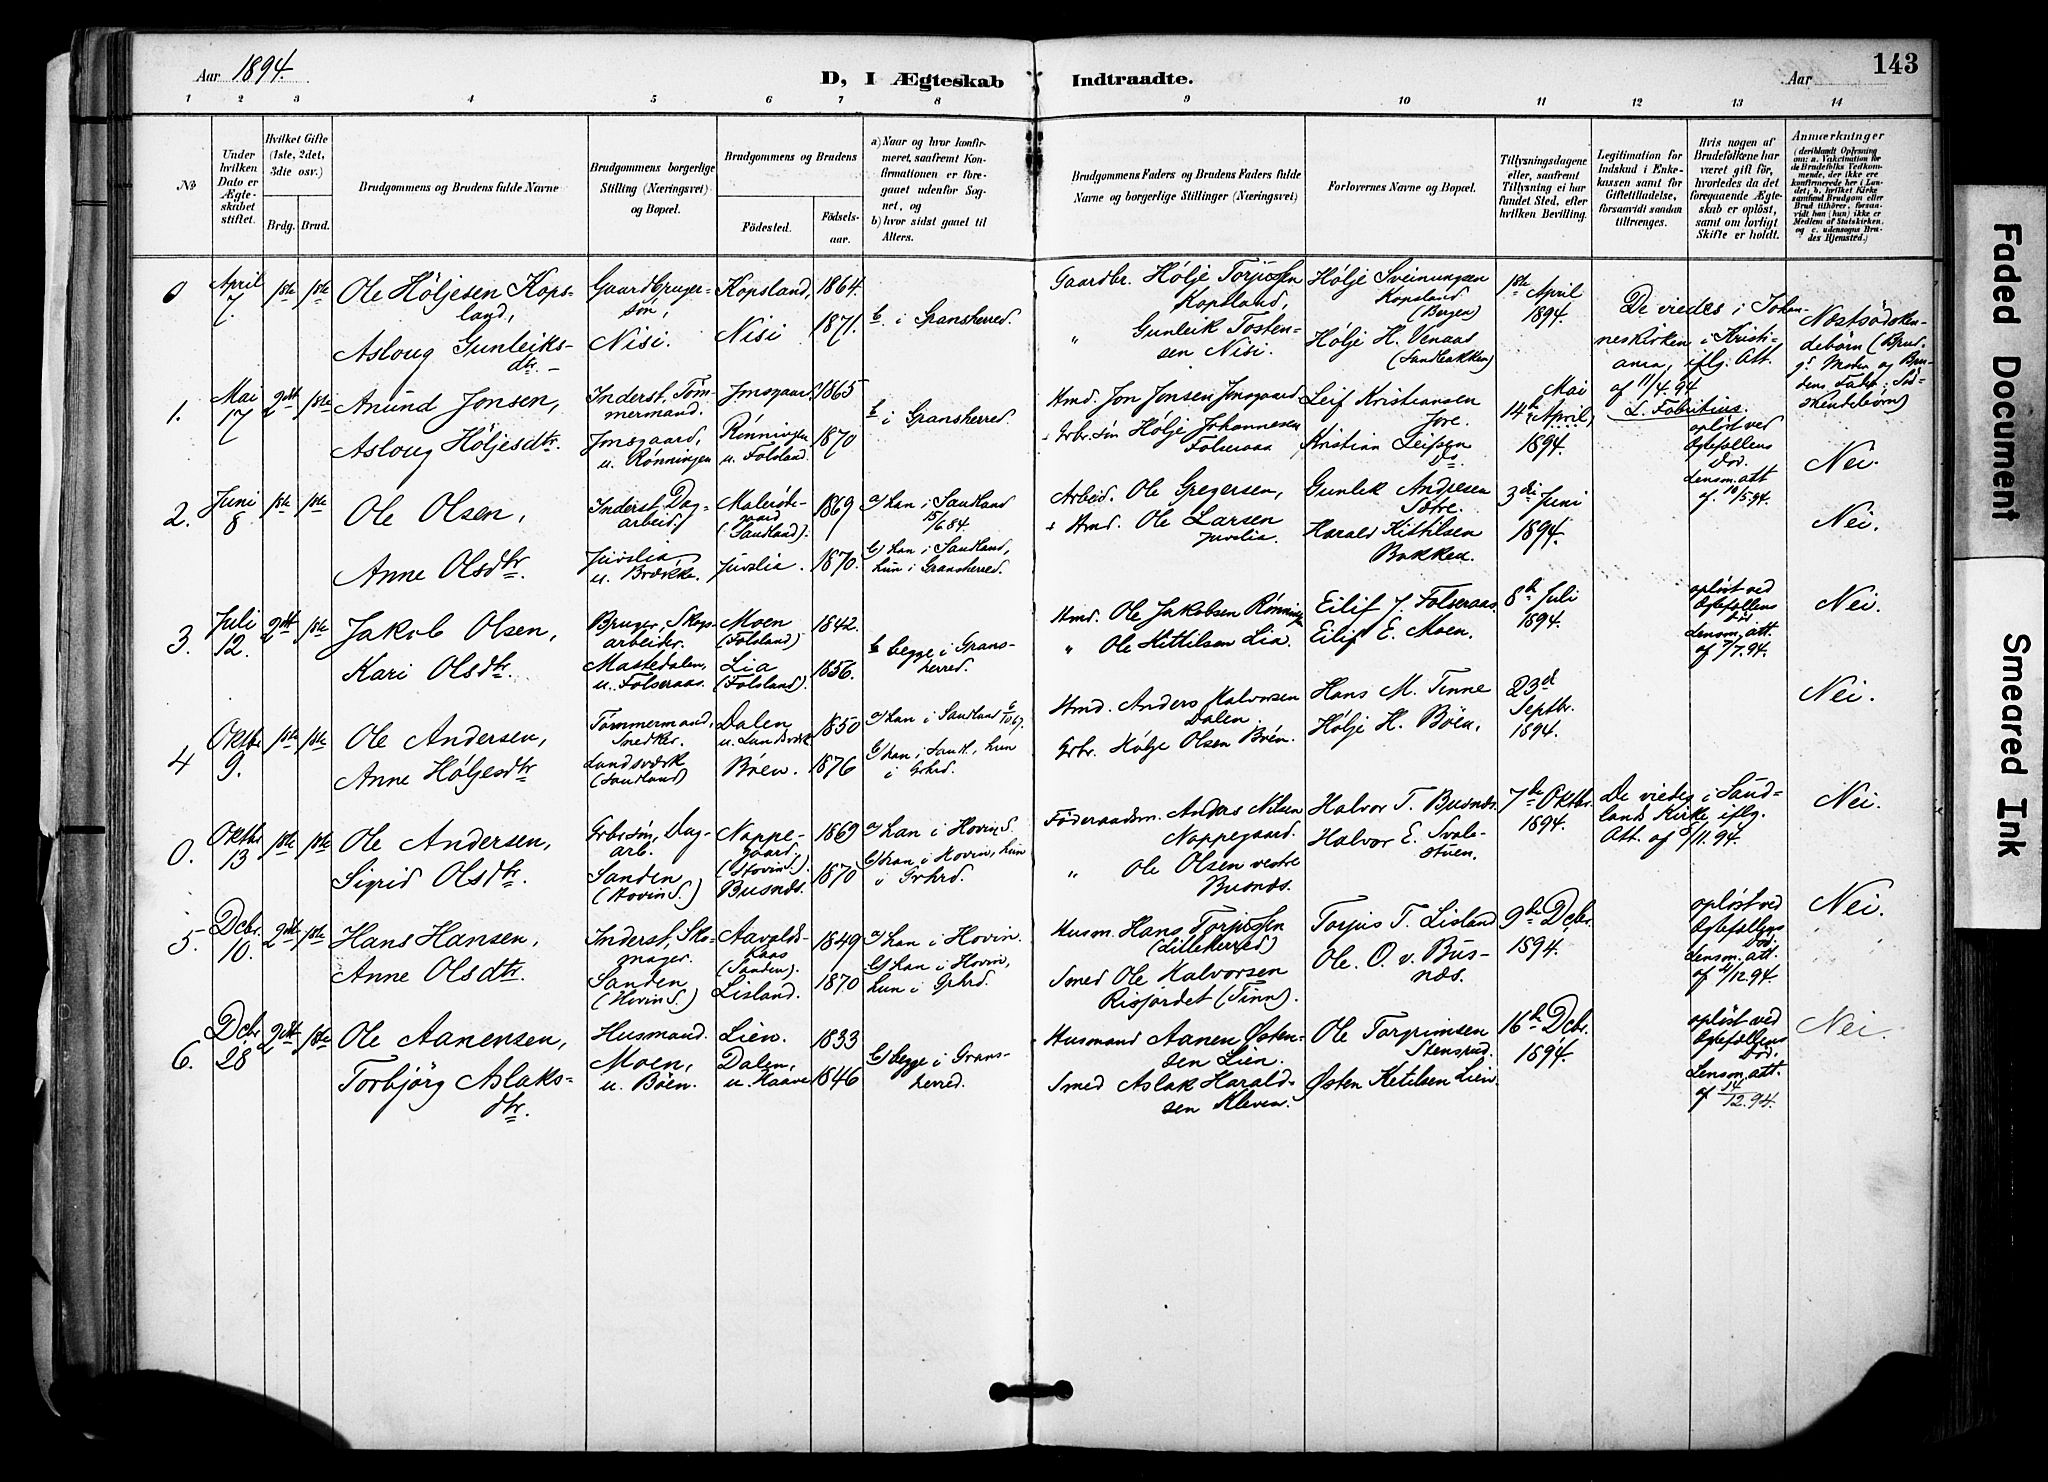 Aar 1894.
D, I Ægteskab Indtraadte.
Aar
143
1 2 3 4 5 6 7 8 9 10 11 12 13 14
No
Under hvilken Dato er Ægteskabet stiftet.
Hvilket Gifte (1ste, 2det, 3die osv.)
Brdg. Brud.
Brudgommens og Brudens fulde Navne
Brudgommens borgerlige Stilling (Næringsvei) og Bopæl.
Brudgommens og Brudens
Födested.
Födselsaar.
a) Naar og hvor konfirmeret, saafremt Konfirmationen er foregaaet udenfor Sognet, og
b) hvor sidst gaaet til Alters.
Brudgommens Faders og Brudens Faders fulde Navne og borgerlige Stillinger (Næringsvei)
Forlovernes Navne og Bopæl.
Tillysningsdagene eller, saafremt Tillysning ei har fundet Sted, efter hvilken Bevilling.
Legitimation for Indskud i Enkekassen samt for Giftetilladelse, forsaavidt saadan tiltrænges.
Hvis nogen af Brudefolkene har været gift för, hvorledes da det foregaaende Ægteskab er oplöst, samt om lovligt Skifte er holdt.
Anmærkninger
(deriblandt Oplysning om: a. Vakcination for de Brudefolks Vedkommende, der ikke ere konfirmerede her i Landet, b. hvilket Kirkesamfund Brudgom eller Brud tilhörer, forsaavidt han (hun) ikke er Medlem af Statskirken, og c. udensogns Brudes Hjemsted.)
0 April 7. 1ste 1ste
Ole Höljesen Kopsland,
Asloug Gunleiksdtr. -
Gaardbrugersön,
Nisi.
Kopsland, 1864.
Nisi 1871.
b. i Gransherred.
Gaardbr. Hölje Torjussen Kopsland,
" Gunleik Tostensen Nisi.
Hölje Sveinungsen Kopsland (Bergen)
Hölje H. Venaas (Sandbakken)
1ste April 1894.
De viedes i Johanneskirken i Kristiania, iflg. Att. af 11/4.94 L. Fabritius.
Næstsödskendebörn (Brudg. Moder og Brudens Fader: Södskendebörn)
1. Mai 17 2det 1ste
Anund Jonsen,
Asloug Höljesdtr.
Inderst, Tömmermand.
Jmsgaard, u. Rönningen
Jmsgaard 1865
Rönningen u. Folsland. 1870
b i Gransherred.
Hmd. Jon Jonsen Jmsgaard
Grbr.sön Hölje Johannesen Folseraas
Leif Kristiansen Jore.
Kristian Leifsen Do.
Mai 14de (April) 1894.
oplöst ved Ægtefællens Död. Lensm. att af 10/5 94.
Nei.
2. Juni 8 1ste 1ste
Ole Olsen,
Anne Olsdtr.
Inderst, Dagarbeid.
Juvslia u. Brække.
(Sauland). 1869
Juvslia. 1870.
a/ han i Sauland 15/6.84.
b/ han i Sauland, hun i Gransherred.
Arbeid. Ole Gregersen,
Hmd. Ole Larsen Juvslia.
Gunlik Andresen Sætre.
Harald Kittilsen Bakken.
3die Juni 1894.
Nei.
3. Juli 12. 2det 1ste
Jakob Olsen,
Kari Olsdtr.
Bruger, Skogsarbeider.
Mastedalen, u. Folseraas.
Moen (Folsland) 1842.
Lia (Folsland). 1856.
b begge i Gransherred.
Hmd. Ole Jakobsen Rönning
" Ole Kittilsen Lia.
Eilif J. Folseraas.
Eilif E. Moen.
8de Juli 1894.
oplöst ved Ægtefællens Död. Lensm. att. af 7/7.94.
Nei.
4 Oktbr. 9. 1ste 1ste
Ole Andersen,
Anne Höljesdtr
Tömmermand, Snedker.
Landsværk (Sauland)
Dalen u. Landsværk 1850
Böen. 1876
a/ han i Sauland 6/10 67.
b/ han i Saul., hun i Grhrd.
Hmd. Anders Halvorsen Dalen.
Grbr. Hölje Olsen Böen.
Hans M. Tinne
Hölje H. Böen.
23de Septbr. 1894.
Nei.
0. Oktbr 13 1ste 1ste
Ole Andersen,
Sigrid Olsdtr.
Grbrsön, Dagarb.
Sanden (Hovin S.)
Noppegaard. (Hovin S.) 1869
Busnes. 1870
a/ han i Hovin S.
b/ han i Hovin, hun i Grhrd.
Föderaadsm. Anders Nilsen Noppegaard.
" Ole Olsen vestre Busnæs.
Halvor T. Busnæs.
Halvor E. Svalestuen.
7de Oktbr. 1894.
De viedes i Saulands Kirke, iflg. Att. af 5/11.94.
Nei.
5. Dcbr. 10. 2det 1ste
Hans Hansen,
Anne Olsdtr.
Inderst, Skomager.
Sanden (Hovin S.)
(Sanden). 1849
Lisland. 1870
a/ han i Hovin.
b/ han i Hovin, hun i Grhrd.
Husm. Hans Torjussen (Lilleherred)
Smed Ole Halvorsen Risjordet (Tinn).
Torjus T. Lisland
Ole. O. v. Busnæs.
9de Dcbr. 1894.
oplöst ved Ægtefællens Död. Lensm. att. af 4/12.94.
Nei.
6. Dcbr 28 2det 1ste
Ole Aanensen,
Torbjörg Aslaksdtr.
Husmand.
Moen, u. Böen.
Lien. 1833
Dalen, u. Haave 1846
b) begge i Gransherred.
Husmand Aanen Östensen Lien.
Smed Aslak Haraldsen Kleven.
Ole Torgrimsen Stensrud.
Østen Ketilsen Lien.
16de Dcbr. 1894.
oplöst ved Ægtefællens Död. Lensm. att. af 14/12.94.
Nei.
Faded Document
Smeared Ink